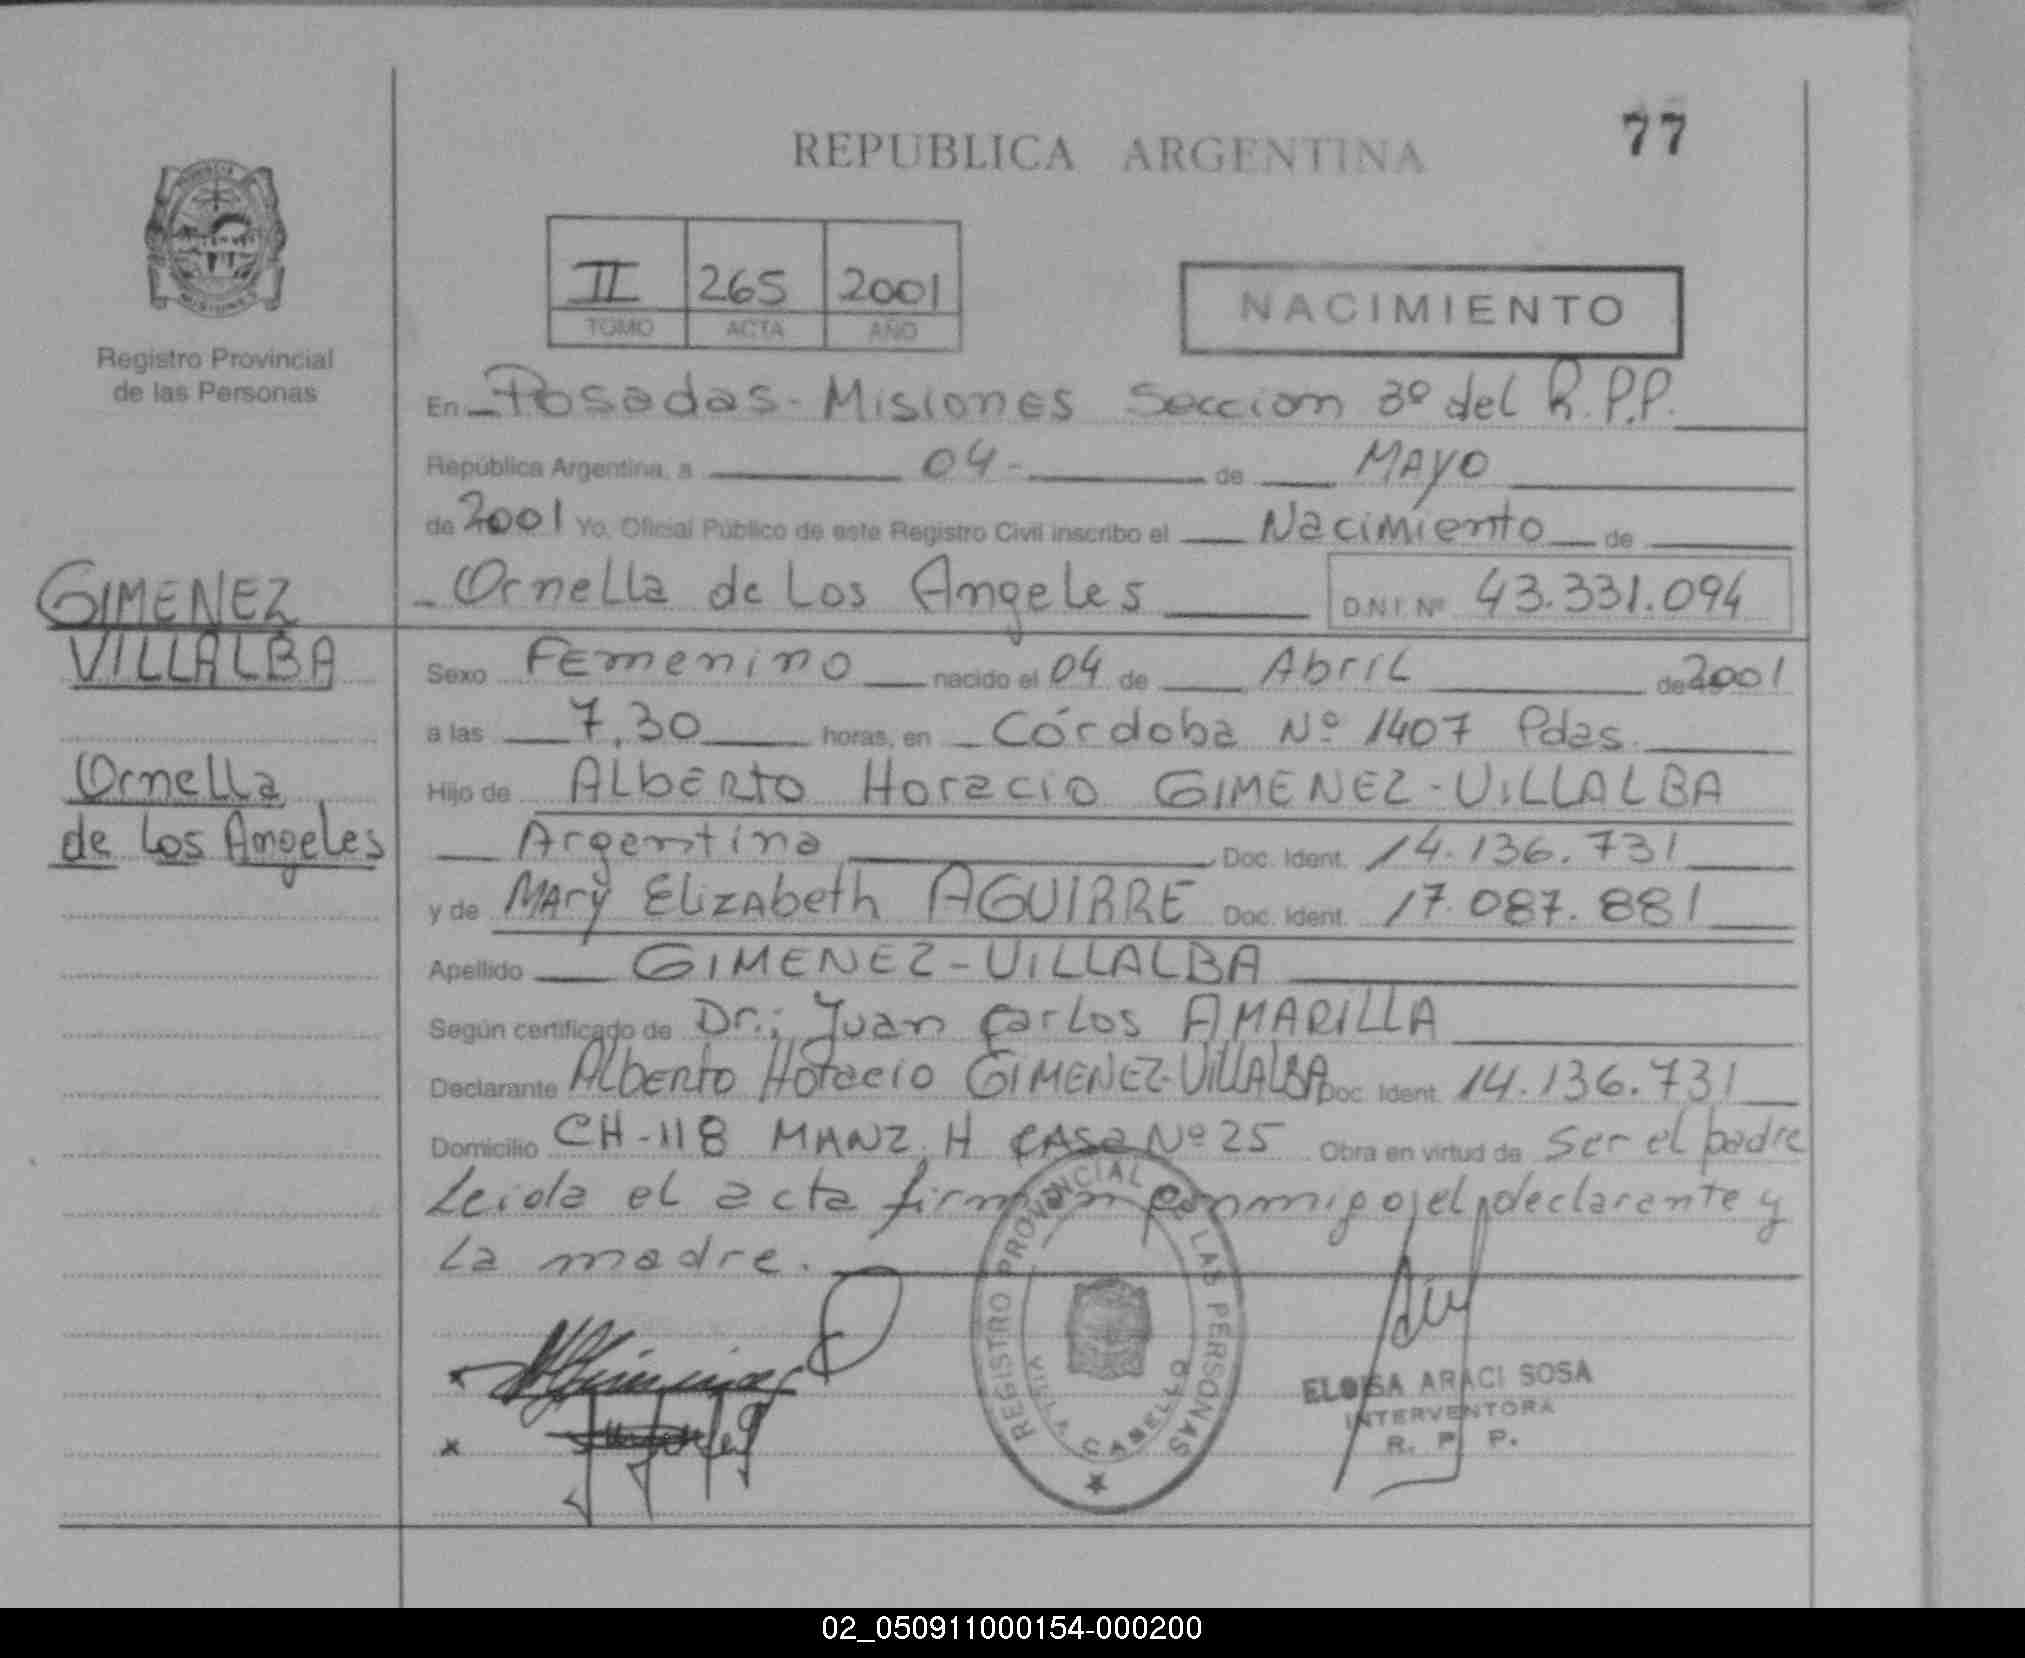 77
REPUBLICA ARGENTINA
II 265 2001
TOMO ACTA AÑO
NACIMIENTO
MISIONES
Registro Provincial
de las Personas
GIMENEZ
VILLALBA
Ornella
de los Angeles
En Posadas - Misiones Seccion 3º del R.P.P.
República Argentina, a 04 - de MAYO
de 2001 Yo, Oficial Público de este Registro Civil inscribo el Nacimiento de
Ornella de Los Angeles D.N.I. Nº 43.331.094
Sexo Femenino nacido el 04 de Abril de 2001
a las 7,30 horas, en Córdoba Nº 1407 Pdas.
Hijo de Alberto Horacio GIMENEZ-VILLALBA
Argentina Doc. Ident. 14.136.731
y de Mary Elizabeth AGUIRRE Doc. Ident. 17.087.881
Apellido GIMENEZ-VILLALBA
Según certificado de Dr.; Juan Carlos AMARILLA
Declarante Alberto Horacio GIMENEZ-VILLALBA Doc. Ident. 14.136.731
Domicilio CH-118 MANZ. H CASA Nº 25 Obra en virtud de Ser el padre
Leida el acta firman conmigo, el declarante y
La madre.
REGISTRO PROVINCIAL DE LAS PERSONAS
VILLA CABELLO
ELOISA ARACI SOSA
INTERVENTORA
R. P. P.
02_050911000154-000200